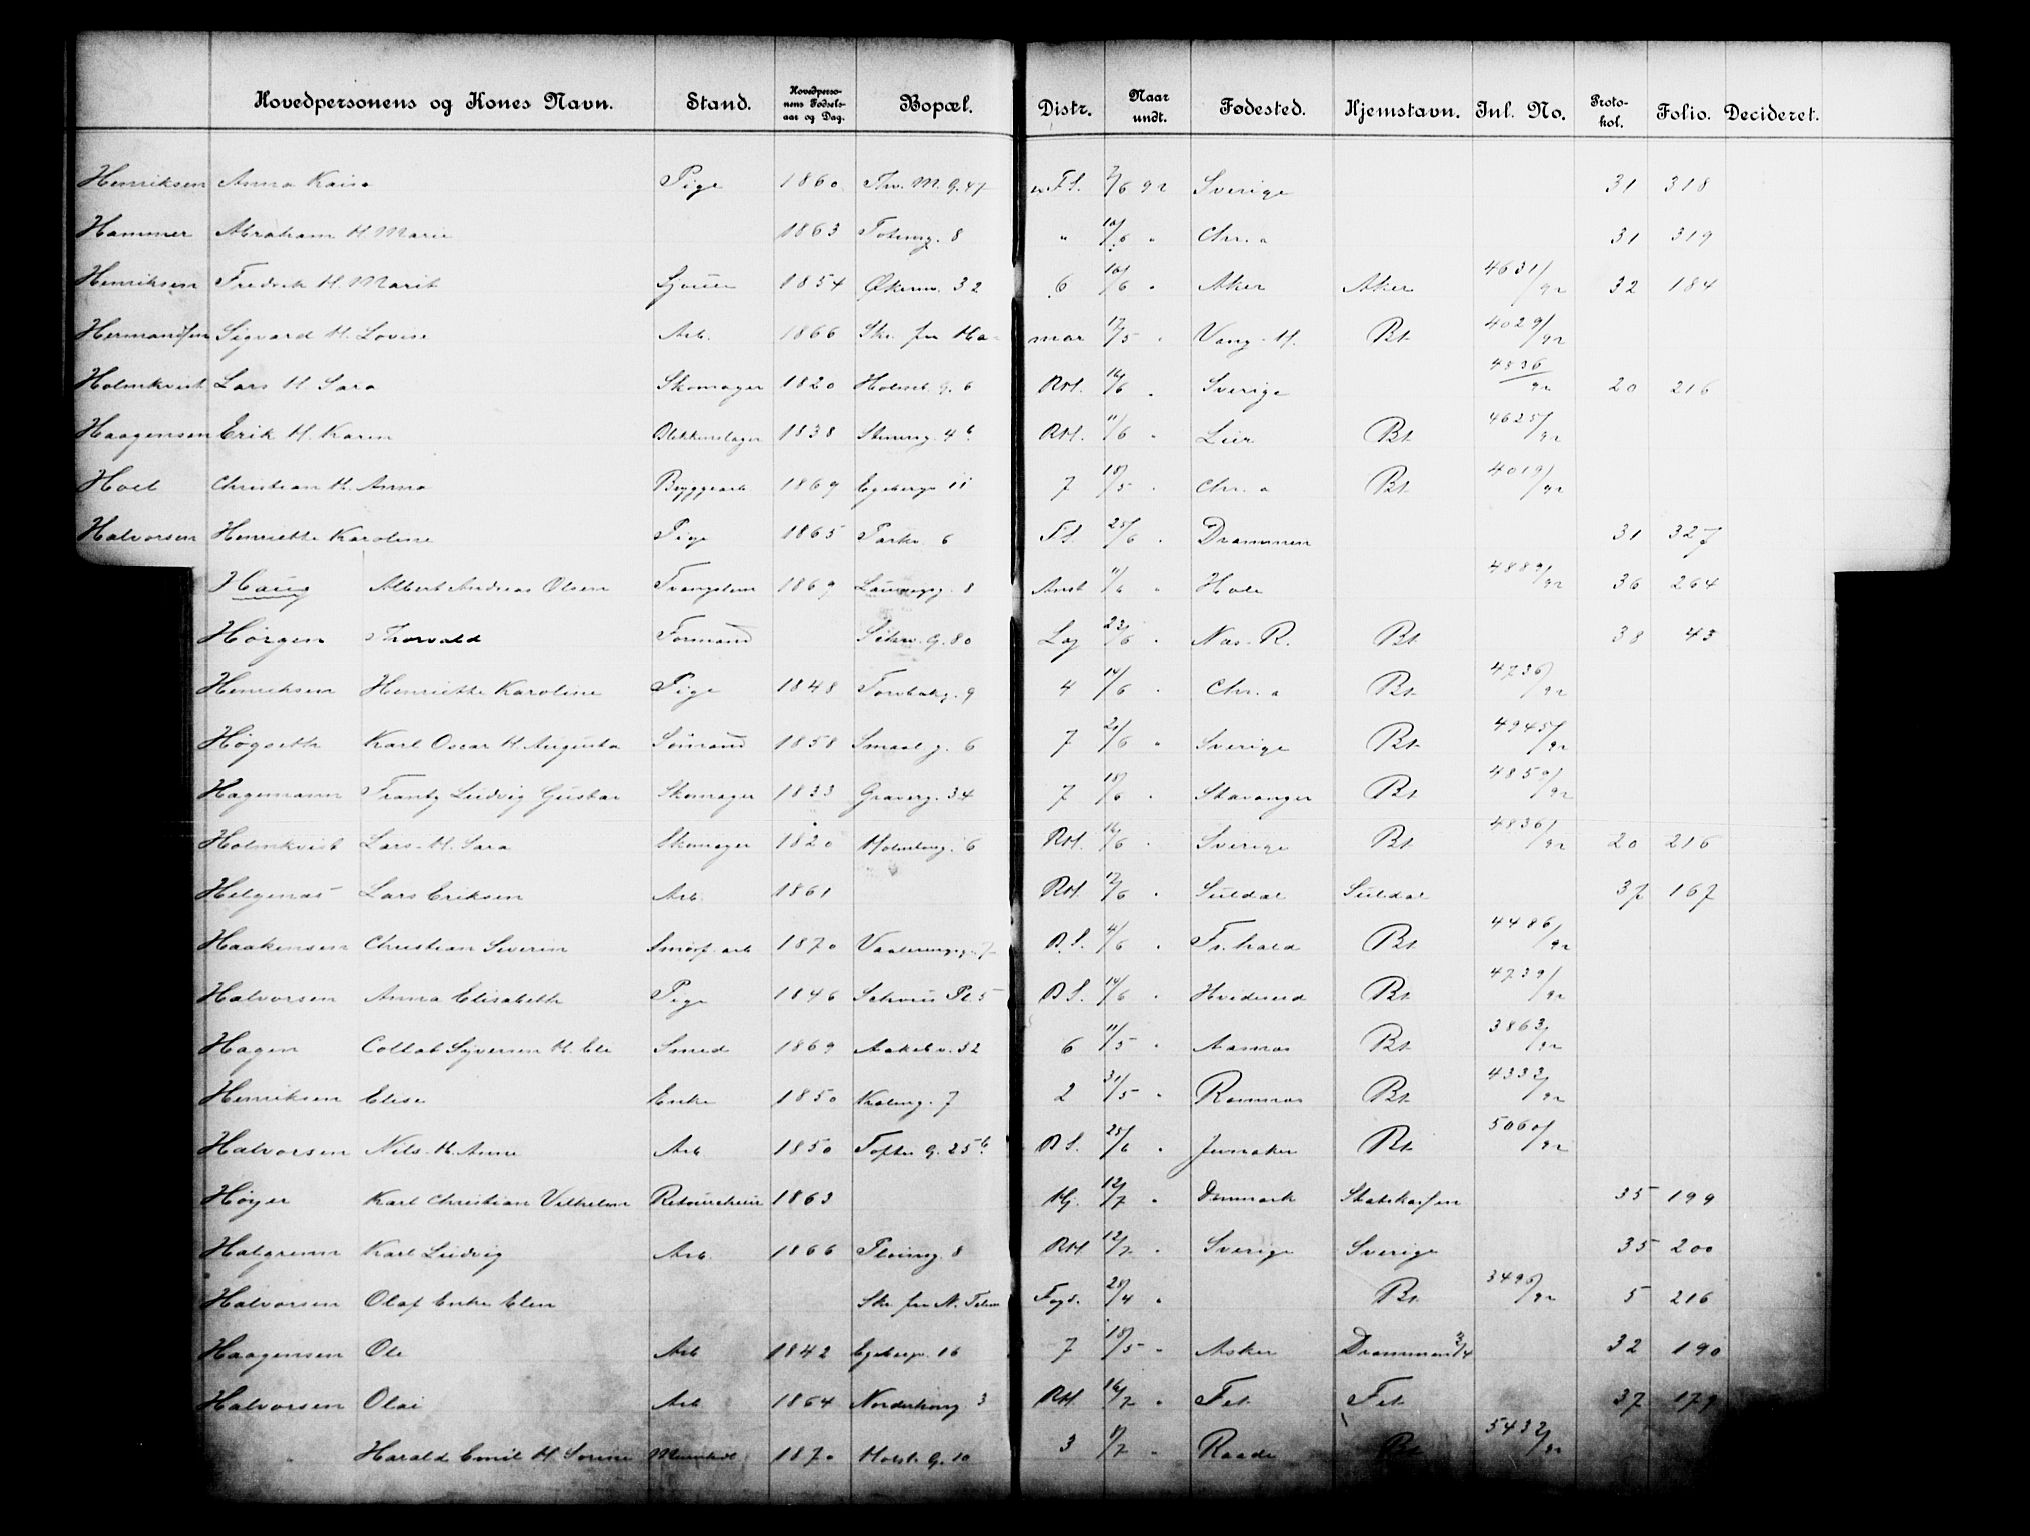 Hovedpersonens og Kones Navn. Stand. Hovedperso-nens Fødsels-aar og Dag. Bopæl. Distr. Naar undt. Fødested. Hjemstavn. Inl. No. Proto-kol. Folio. Decideret.
Henriksen Anna Kaisa Pige 1860 Thv. M. G. 47 7/6 92 Sverige 31 318
Hammer Abraham H. Marie 1863 Totensg. 8 " 10/6 " Chr.a 31 319
Henriksen Fredrik H. Marit 1854 Økernv. 32 6 10/6 " Aker Aker 4631/92 32 184
Hermandsen Sigvard H. Lovise Arb. 1866 Skr. fra Ha-mar 17/5 " Vang H. Bt. 4029/92
Holmkvist Lars H. Sara Skomager 1820 Holmb. G. 6 RH. 16/6 " Sverige 4836/92 20 216
Haagensen Erik H. Karen Blikkenslager 1838 Stensg. 4b RH. 11/6 " Lier Bt. 4625/92
Hoel Christian H. Anna Bryggearb. 1869 Egebergv. 11 7 18/5 " Chr.a Bt. 4019/92
Halvorsen Henriette Karoline Pige 1865 Parkv. 6 Fs. 25/6 " Drammen 31 327
Haug Albert Andreas Olsen Tvangslem 1869 Laurvigsg. 8 Anst. 11/6 " Hole 4889/92 36 264
Hörgen Thorvald Formand Pilestr. G. 80 Lag 23/6 " Næs. R. Bt. 38 43
Henriksen Henriette Karoline Pige 1848 Torvbakg. 9 4 14/6 " Chr.a Bt. 4736/92
Høgseth Karl Oscar H. Augusta Sömand 1858 Smaal. g. 6 7 20/6 " Sverige Bt. 4945/92
Hagemann Frantz Ludvig Gustav Skomager 1833 Graverg. 34 7 18/6 " Stavanger Bt. 4859/92
Holmkvist Lars H. Sara Skomager 1820 Holmbog. 6 RH. 16/6 " Sverige Bt. 4836/92 20 216
Helgenas Lars Eriksen Arb. 1861 RH. 17/6 " Suldal Suldal 37 167
Haakensen Christian Severin arb 1870 Vaalerengsg. 7 B.S. 4/6 " Fr.hald Bt. 4486/92
Halvorsen Anna Elisabeth Pige 1846 Schous Pl. 5 B.S. 14/6 " Hvideseid Bt. 4739/92
Hagen Collab Syversen H. Eli Smed 1869 Aakebv. 32 6 11/5 " Aasnæs Bt. 3863/92
Henriksen Elise Enke 1850 7 2 31/5 " Bt. 4333/92
Halvorsen Nils H. Anne Arb 1850 Toftes G. 25b B.S. 25/6 " Jevnaker Bt. 5060/92
Høyer Karl Christian Vilhelm 1863 Hj. 12/7 " Danmark Statskassen 35 199
Halgrenn Karl Ludvig Arb. 1866 Plougg. 8 RH. 12/7 " Sverige Sverige 35 200
Halvorsen Olaf Enke Elen Skr. fra N. Telem Fogd. 28/4 " Bt. 3496/92 5 216
Haagensen Ole Arb 1842 Egebergv. 16 7 18/5 " Asker Drammen 3/4 32 190
Halvorsen Olai Arb 1864 Norderhovg 3 RH. 16/7 " Fet Fet 37 179
" Harald Emil H. Sorine 1870 Holst. G. 10 3 1/7 " Raade Bt. 5432/92